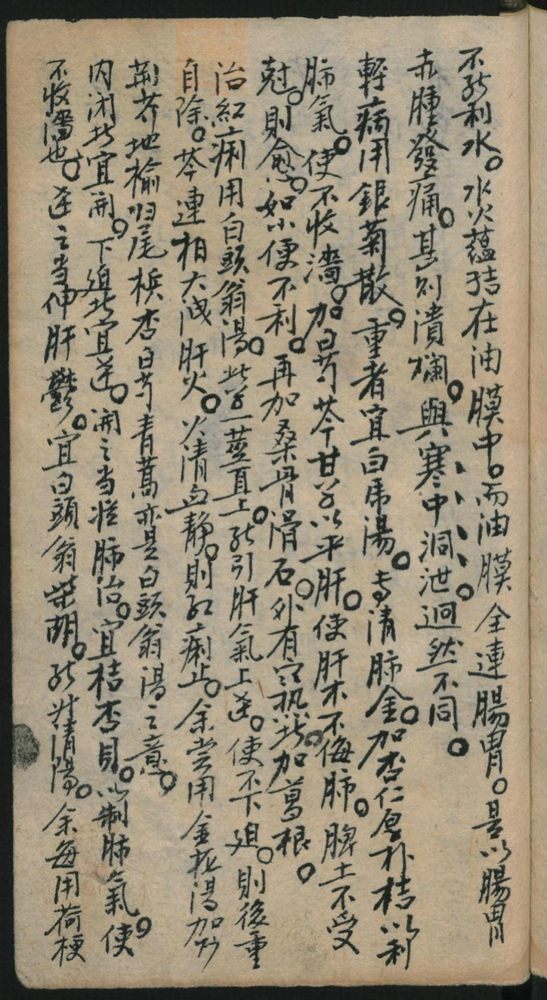 不能利水。水火蘊結在油膜中。而油膜全連腸胃。是以腸胃
赤腫發痛。甚則潰爛。與寒中洞泄迥然不同。
輕病用銀菊散。重者宜白虎湯。專清肺金。加杏仁厚朴桔以利
肺氣。使不收濇。加白芍芩甘草以平肝。使肝木不侮肺。脾土不受
尅。則愈。如小便不利。再加桑皮滑石。外有寒热者加葛根。
治紅痢用白頭翁湯。此草一莖直上。能引肝氣上达。使不下迫。則後重
自除。芩連柏大洩肝火。火清血静。則紅痢止。余嘗用金花湯加
荊芥地榆归尾槟杏白芍青蒿亦是白頭翁湯之意。
内闭者宜開。下迫者宜达。開之当從肺治。宜桔杏貝。以制肺氣。使
不收濇也。达之当伸肝鬱。宜白頭翁柴胡。能升清陽。余每用荷梗